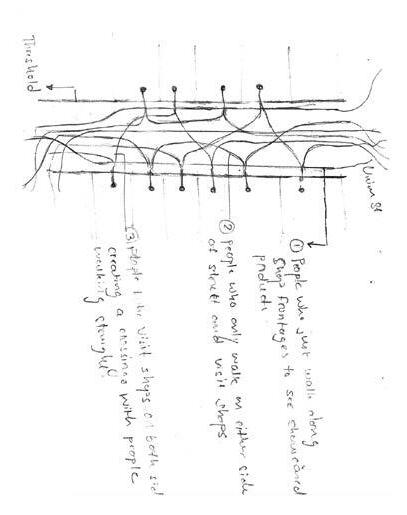 Threshold
Union St
① People who just walk along
shop frontages to see showcased
products.
② people who only walk on either side
of street and visit shops
③ People who visit shops on both sid
creating a crossing with people
walking straight